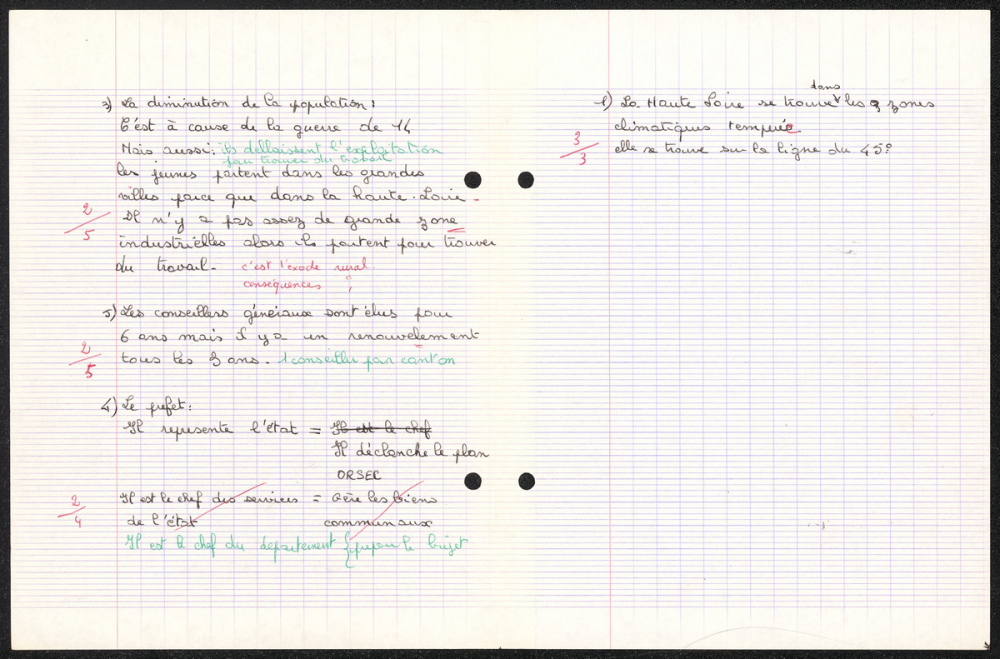 3) La diminution de la population :
C'est à cause de la guerre de 14
Mais aussi : ils dellaissent l'exploitation
pour trouver du travail
les jeunes partent dans les grandes
villes parce que dans la haute-Loire
2/5
Il n'y a pas assez de grande zone
industrielles alors ils partent pour trouver
du travail. c'est l'exode rural.
conséquences ?
5) Les conseillers généraux sont élus pour
6 ans mais il y a un renouvelement
2/5
tous les 3 ans. 1 conseiller par canton
4) Le prefet :
Il represente l'état = Il est le chef
Il déclanche le plan
ORSEC
2/4
Il est le chef des services = Gère les biens
de l'état communaux
Il est le chef du departement { prepare le bujet
1) La Haute Loire se trouve dans les 3 zones
climatiques temperée
3/3
elle se trouve sur la ligne du 45°